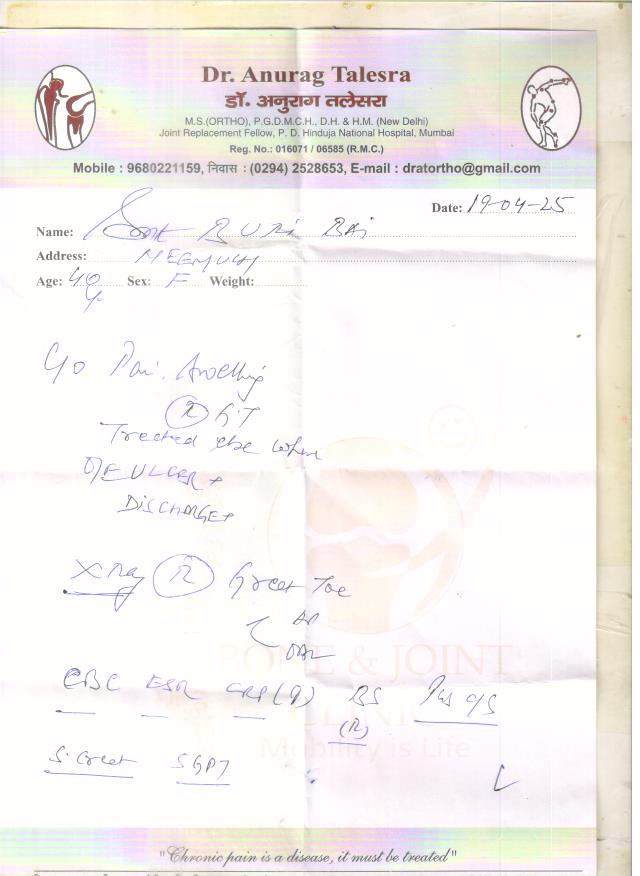 Dr. Anurag Talesra
डॉ. अनुराग तलेसरा
M.S.(ORTHO), P.G.D.M.C.H., D.H. & H.M. (New Delhi)
Joint Replacement Fellow, P. D. Hinduja National Hospital, Mumbai
Reg. No.: 016071 / 06585 (R.M.C.)
Mobile : 9680221159, निवास : (0294) 2528653, E-mail : dratortho@gmail.com
Date: 19-04-25
Name: Smt BURI BAI
Address: NEEMUCH
Age: 40y Sex: F Weight:
C/o Pain, Swelling
(R) GT
Treated else where
O/E ULCER+
DISCHARGE+
X Ray (R) Great Toe
AP
OBL
BONE & JOINT
CBC ESR CRP(Q) BS Pus C/S
(R)
CLINIC
Mobility is Life
S. Creat SGPT
"Chronic pain is a disease, it must be treated"